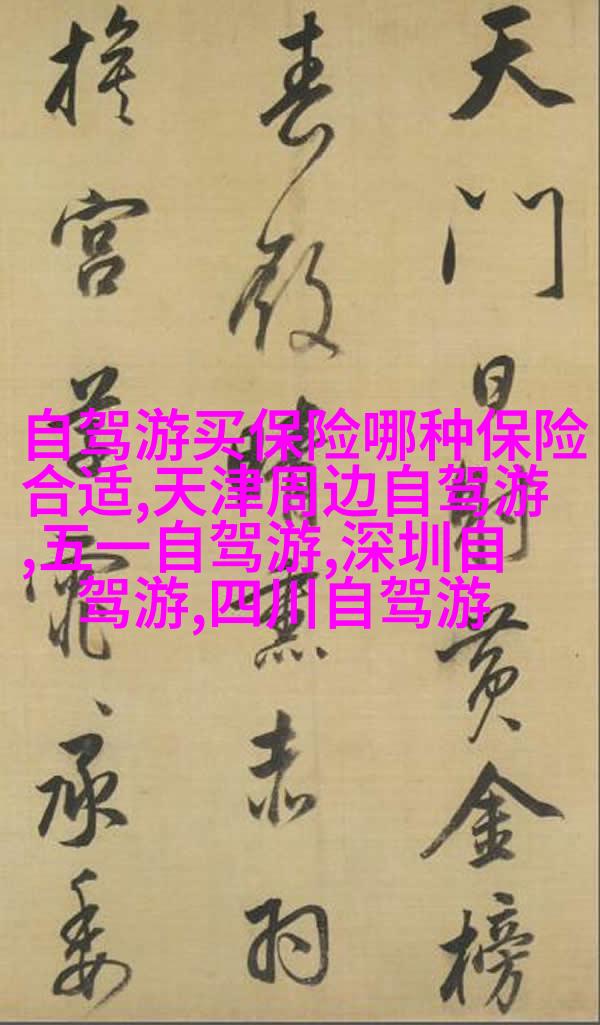 自驾游买保险哪种保险
合适,天津周边自驾游
,五一自驾游,深圳自
驾游,四川自驾游
天門日射黄金榜
春殿晴熏赤羽
旗宫草霏〻承委